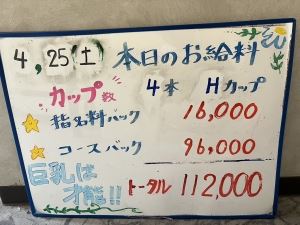 4,25(土) 本日のお給料
カップ数 4本 Hカップ
☆指名料バック 16,000
☆コースバック 96,000
巨乳は
才能!! トータル 112,000